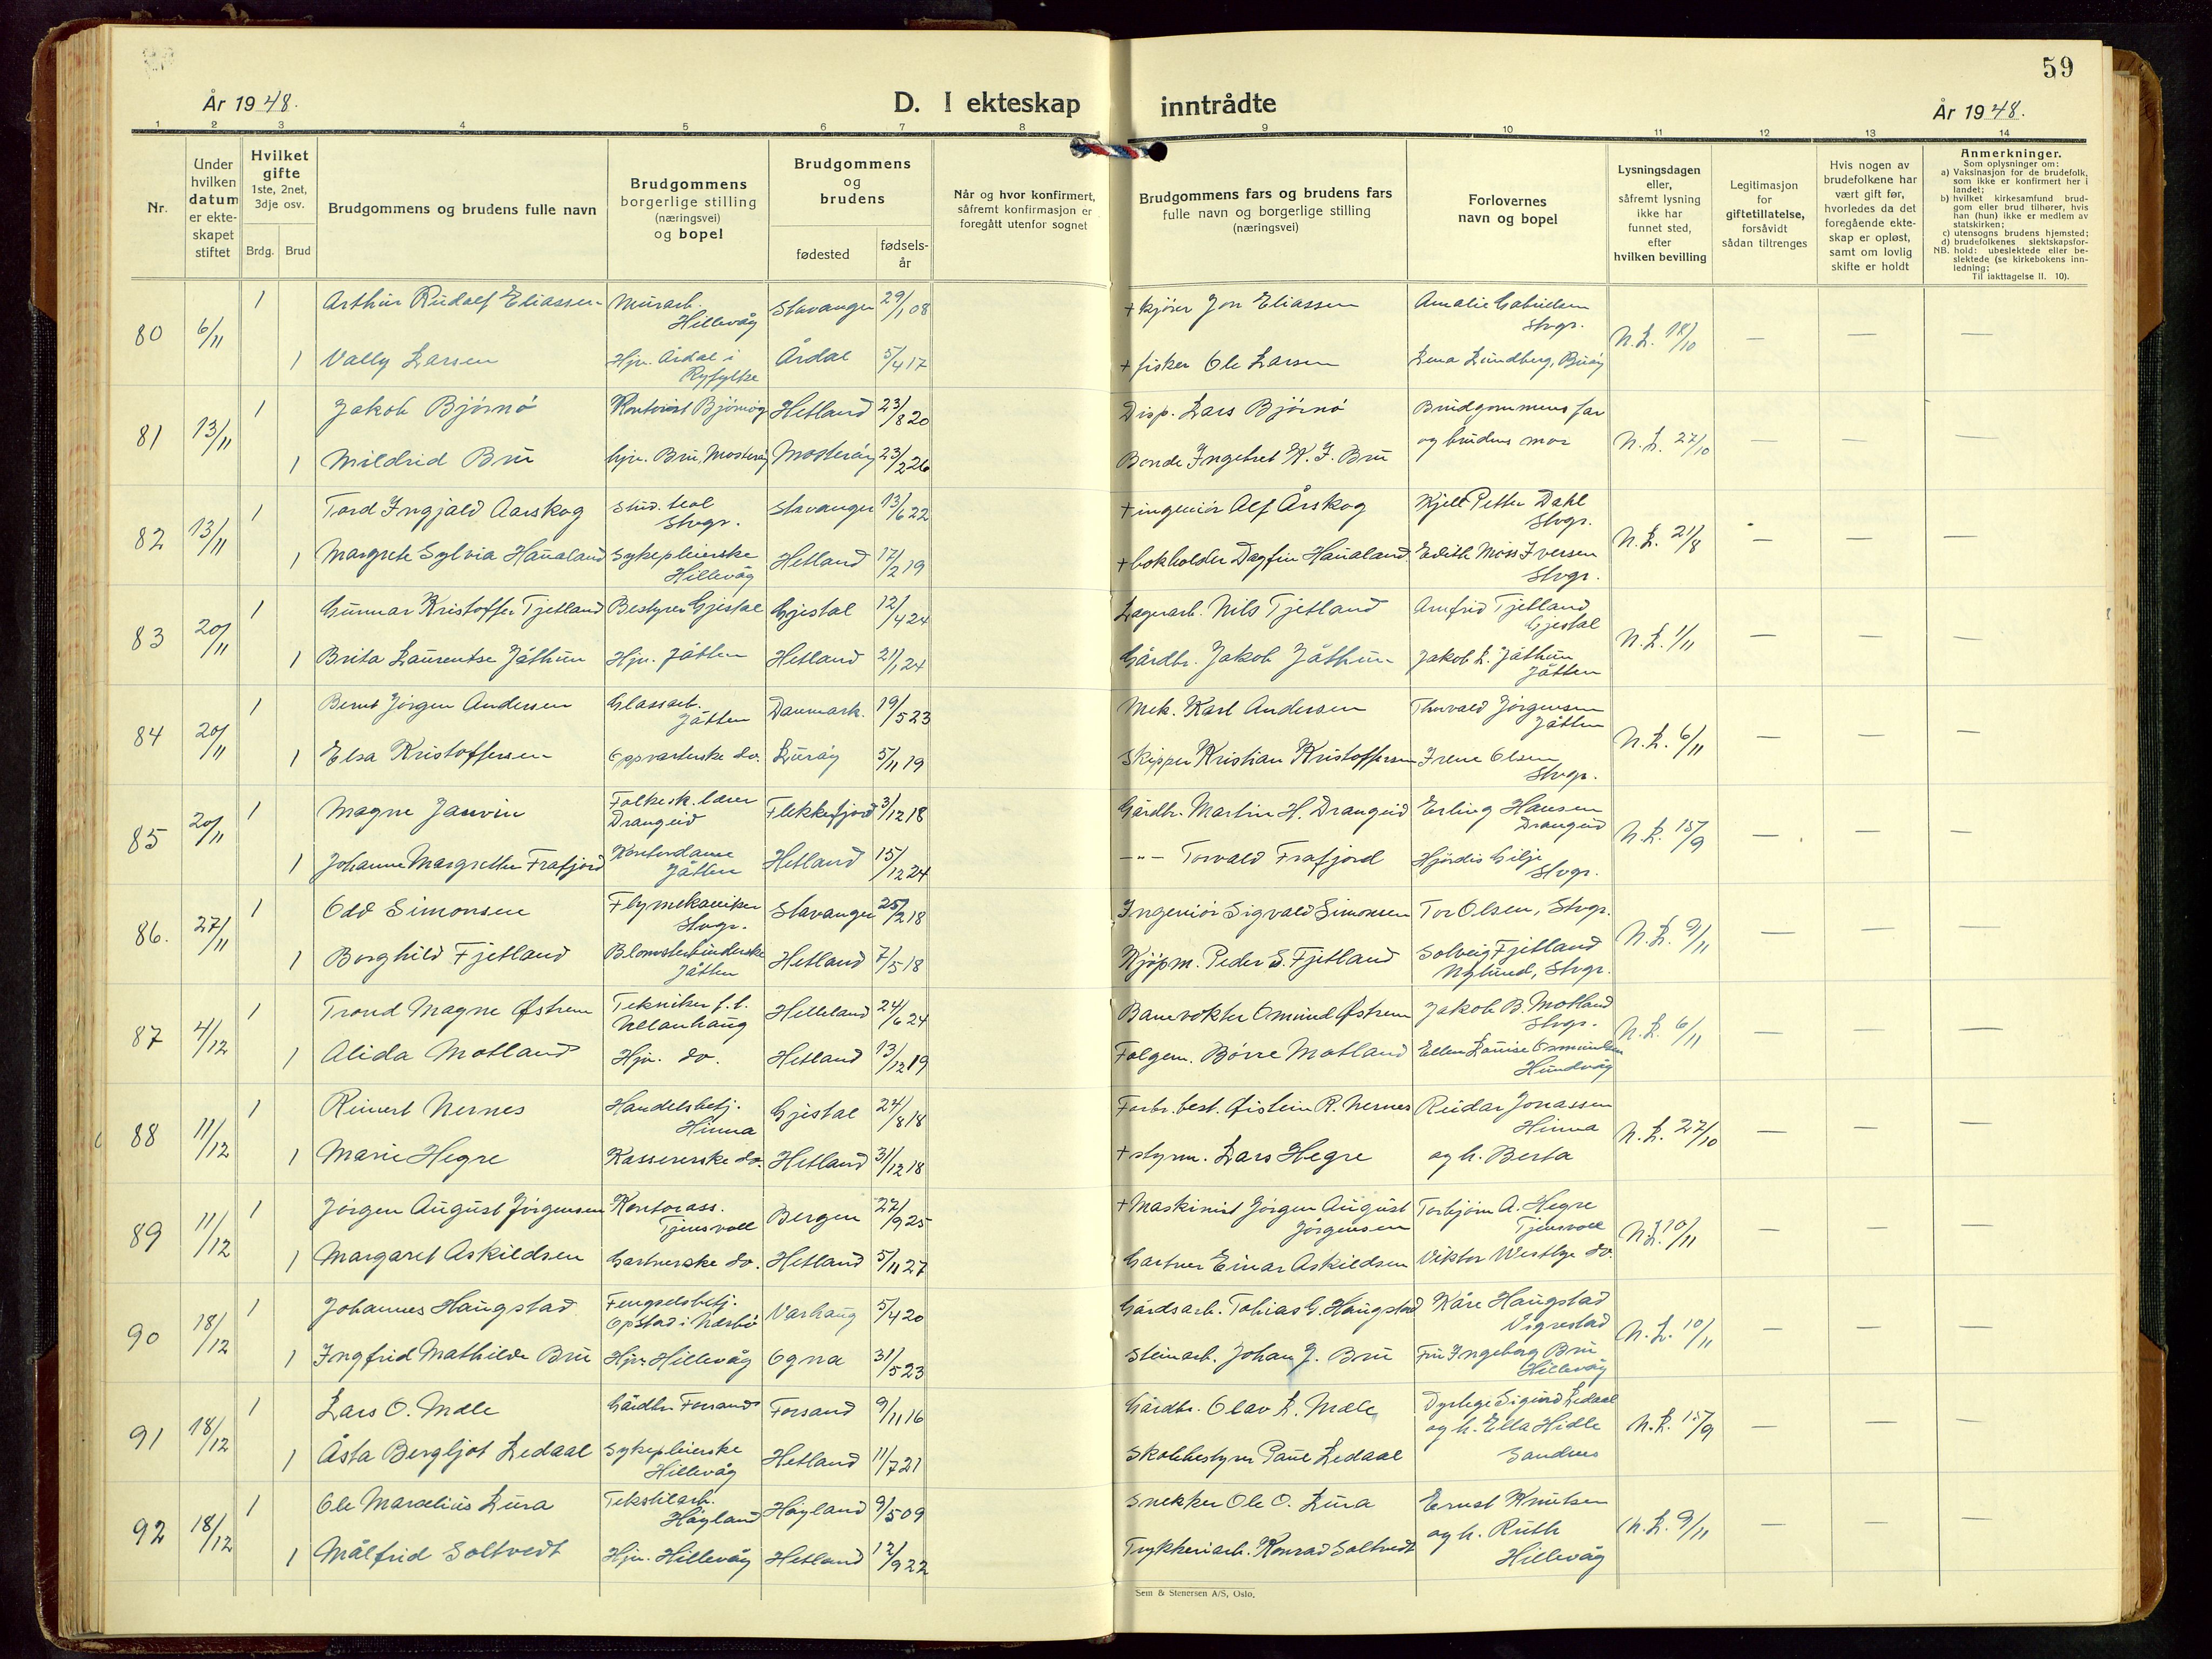 59
År 1948.
D. I ekteskap inntrådte
År 1948.
1 2 3 4 5 6 7 8 9 10 11 12 13 14
Nr.
Under hvilken datum er ekteskapet stiftet
Hvilket gifte 1ste, 2net, 3dje osv.
Brdg. Brud
Brudgommens og brudens fulle navn
Brudgommens borgerlige stilling (næringsvei) og bopel
Brudgommens og brudens
fødested
fødselsår
Når og hvor konfirmert, såfremt konfirmasjon er foregått utenfor sognet
Brudgommens fars og brudens fars fulle navn og borgerlige stilling (næringsvei)
Forlovernes navn og bopel
Lysningsdagen eller, såfremt lysning ikke har funnet sted, efter hvilken bevilling
Legitimasjon for giftetillatelse, forsåvidt sådan tiltrenges
Hvis nogen av brudefolkene har vært gift før, hvorledes da det foregående ekteskap er opløst, samt om lovlig skifte er holdt
Anmerkninger.
Som oplysninger om:
a) Vaksinasjon for de brudefolk, som ikke er konfirmert her i landet;
b) hvilket kirkesamfund brudgom eller brud tilhører, hvis han (hun) ikke er medlem av statskirken;
c) utensogns brudens hjemsted;
d) brudefolkenes slektskapsforhold: ubeslektede eller beslektede (se kirkebokens innledning;
NB. Til iakttagelse II. 10).
80 6/11 1 Arthur Rudolf Eliassen Murarb. Hillevåg Stavanger 29/1 08 + kjører Jon Eliassen Amalie Gabrielsen Stvgr. N.L. 18/10 — — —
1 Vally Larsen Hjv. Årdal i Ryfylke Årdal 5/4 17 + fisker Ole Larsen Lena Lundberg, Buøy
81 13/11 1 Jakob Bjørnø Kontorist Bjørnøy Hetland 23/8 20 Disp. Lars Bjørnø Brudgommens far N.L. 27/10 — — —
1 Mildrid Bru Hjv. Bru, Mosterøy Mosterøy 23/2 26 Bonde Ingebret K. J. Bru og brudens mor
82 13/11 1 Tord Ingjald Aarskog Stud. teol Stvgr. Stavanger 13/6 22 + ingeniør Alf Årskog Kjell Petter Dahl Stvgr. N.L. 21/8 — — —
1 Margrete Sylvia Haualand Sykepleierske Hillevåg Hetland 17/2 19 + bokholder Dagfin Haualand Edith Moss Iversen Stvgr.
83 20/11 1 Gunnar Kristoffer Tjetland Bestyrer Gjestal Gjestal 12/4 24 Lagerarb. Nils Tjetland Arnfrid Tjetland Gjestal N.L. 1/11 — — —
1 Brita Laurentse Jåthun Hjv. Jåtten Hetland 21/1 24 Gårdbr. Jakob Jåthun Jakob L. Jåthun Jåtten
84 20/11 1 Bernt Jørgen Andersen Glassarb. Jåtten Danmark. 19/5 23 Mek. Karl Andersen Thorvald Jørgensen Jåtten N.L. 6/11 — — —
1 Elsa Kristoffersen Oppvarterske do. Lurøy 5/11 19 Skipper Kristian Kristoffersen Irene Olsen Stvgr.
85 20/11 1 Magne Janvin Folkesk. lærer Drangeid Flekkefjord 3/12 18 Gårdbr. Martin H. Drangeid Erling Hansen Drangeid N.L. 15/9 — — —
1 Johanne Margrethe Frafjord Kontordame Jåtten Hetland 15/12 24 —"— Torvald Frafjord Hjørdis Gilje Stvgr.
86. 27/11 1 Odd Simonsen Flymekaniker Stvgr. Stavanger 25/2 18 Ingeniør Sigvald Simonsen Tor Olsen, Stvgr. N.L. 9/11 — — —
1 Borghild Fjetland Blomsterbinderske Jåtten Hetland 7/5 18 Kjøpm. Peder S. Fjetland Solveig Fjetland Nylund, Stvgr.
87 4/12 1 Trond Magne Østrem Tekniker f.t. Ullanhaug Helleland 24/6 24 Banevokter Omund Østrem Jakob B. Motland Stvgr. N.L. 6/11 — — —
1 Alida Motland Hjv. do. Hetland 13/12 19 Følgem. Børre Motland Ellen Louise Osmundsen Hundvåg
88 11/12 1 Reinert Nernes Handelsbetj. Hinna Gjestal 24/8 18 Forbr. best. Øistein R. Nernes Reidar Jonassen Hinna N.L. 27/10 — — —
1 Marie Hegre Kassererske do. Hetland 31/12 18 + styrm. Lars Hegre og h. Berta
89 11/12 1 Jørgen August Jørgensen Kontorass. Tjensvoll Bergen 27/9 25 + Maskinist Jørgen August Jørgensen Torbjørn A. Hegre Tjensvoll N.L. 10/11 — — —
1 Margaret Askildsen Gartnerske do. Hetland 5/11 27 Gartner Einar Askildsen Viktor Westbye do.
90 18/12 1 Johannes Haugstad Fengselsbetj. Opstad i Nærbø Varhaug 5/4 20 Gårdsarb. Tobias G. Haugstad Kåre Haugstad Vigrestad N.L. 10/11 — — —
1 Ingfrid Mathilde Bru Hjv. Hillevåg Ogna 31/5 23 Steinarb. Johan J. Bru Fru Ingeborg Bru Hillevåg
91 18/12 1 Lars O. Mæle Gårdbr. Forsand Forsand 9/11 16 Gårdbr. Olav L. Mæle Dyrlege Sigurd Ledaal N.L. 15/9 — — —
1 Åsta Bergljot Ledaal Sykepleierske Hillevåg Hetland 11/7 21 Skolebestyrer Paul Ledaal og h. Ella Hidle Sandnes
92 18/12 1 Ole Marselius Lura Tekstilarb. Høyland Høyland 9/5 09 Snekker Ole O. Lura Ernst Knutsen N.L. 9/11 — — —
1 Målfrid Soltvedt Hjv. Hillevåg Hetland 12/9 22 Trykkeriarb. Konrad Soltvedt og h. Ruth Hillevåg
Sem & Stenersen A/S, Oslo.